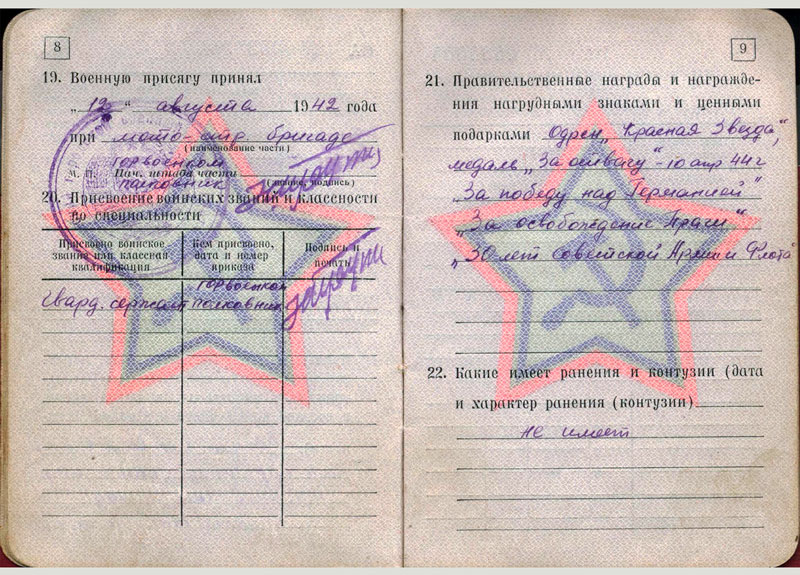 8
19. Военную присягу принял
„12“ августа 1942 года
при мото-стр бригаде
(наименование части)
горвоенком
М. П. Нач. штаба части
полковник
(звание, подпись)
20. Присвоение воинских званий и классности
по специальности
Присвоено воинское звание или классная квалификация
Кем присвоено, дата и номер приказа
Подпись и печать
горвоенком
Гвард. сержант полковник
9
21. Правительственные награды и награжде-
ния нагрудными знаками и ценными
подарками Орден „Красная Звезда“,
медаль „За отвагу“ - 10 апр 44 г
„За победу над Германией“
„За освобождение Праги“,
„30 лет Советской Армии и Флота“
22. Какие имеет ранения и контузии (дата
и характер ранения (контузии)
не имеет